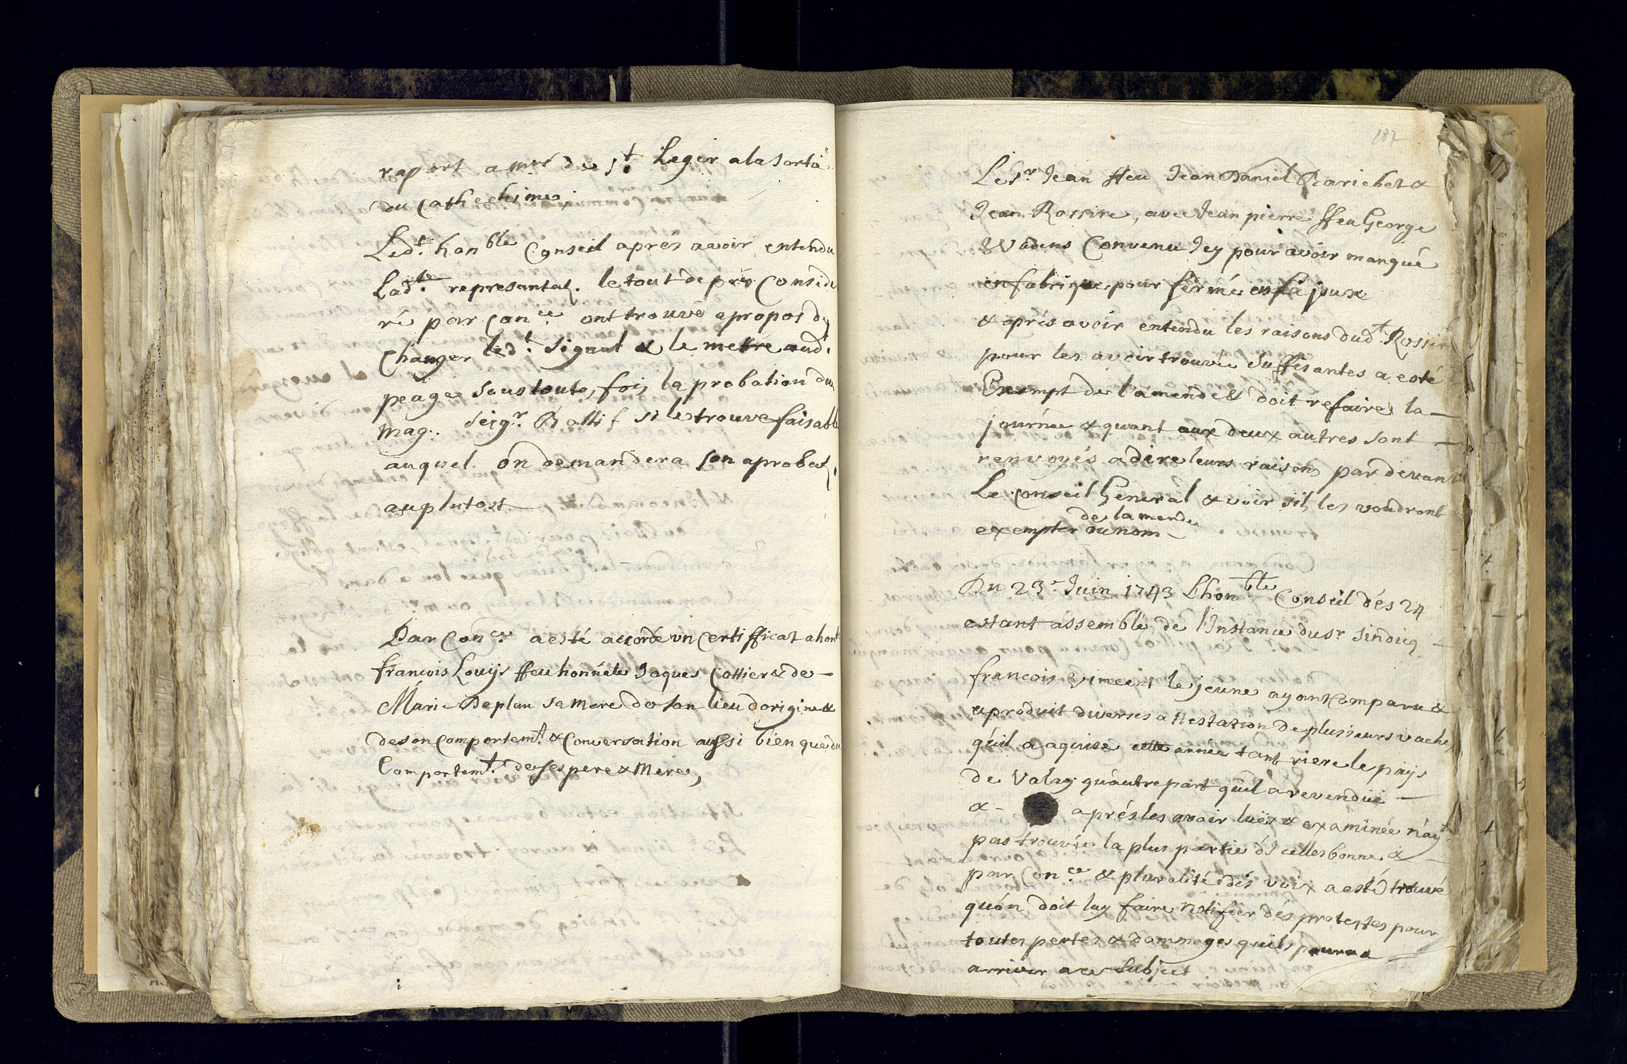 raport a mr de St Leger a la Sortie
du Cathechisme,
Ledt honble Conseil apres avoir entendu
Ladte represantat. le tout de prés Conside
ré par Conce ont trouvé apropos dy
changer ledt Signal & le mettre audt
peage Sous toute fois la probation du
Mag. Seigr Ballif si le trouve faisable
auquel on demandera Son aprobat.
au plutost
Par Conce a esté accordé un Certifficat a hont
francois Louys ffeu honnéte Jaques Cottier & de
Marie Deplan sa Mere de son lieu dorigine &
de son Comportemt & Conversation aussi bien que du
Comportemt de ses pere & Mere,
187
Le Sr Jean ffeu Jean Daniel &
Jean Rossire, avec Jean pierre ffeu George
Wadens Convenu Jcy pour avoir manqué
en fabrique pour
& aprés avoir entendu les raisons dudt Rossir
pour les avoir trouvé Suffisantes a esté
Exempt de l'amende & doit refaire la
journée & quant aux deux autres sont
renvoyés a dire leurs raisons par devant
Le Conseil General & voir sil les voudront
de lamende
exempter ou nom
Du 23e Juin 1743 Lhonble Conseil dés 24
estant assemblé de l'Instance du sr Sindicq
francois le jeune ayant Comparu &
a produit diverses attestation de plusieurs vache
quil a aquise cette année tant riere le pays
de Valay qu'autre part qu'il a revendue
& aprés les avoir luës & examinée n'ayt
pas trouvée la plus partie d'Jcelles bonne &
par Conce & pluralité dés voix a esté trouvé
qu'on doit luy faire notifier dés protestes pour
toutes pertes & dommages quils pourra
arriver a ce Subject